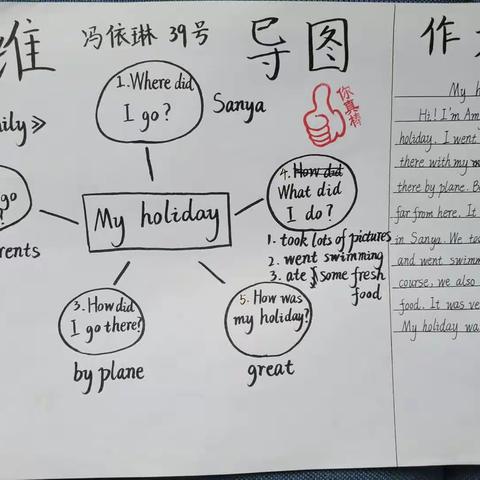 维 冯依琳 39号 导图
1. Where did
I go?
Sanya
你真棒
mily》
go
?
rents
My holiday
4. How did
What did
I do?
1. took lots of pictures
2. went swimming
3. ate some fresh
food
3. How did
I go there?
by plane
5. How was
my holiday?
great
作
My h
Hi! I'm Am
holiday. I went
there with my
there by plane. B
far from here. It
in Sanya. We to
and went swimm
course, we also
food. It was ve
My holiday wa